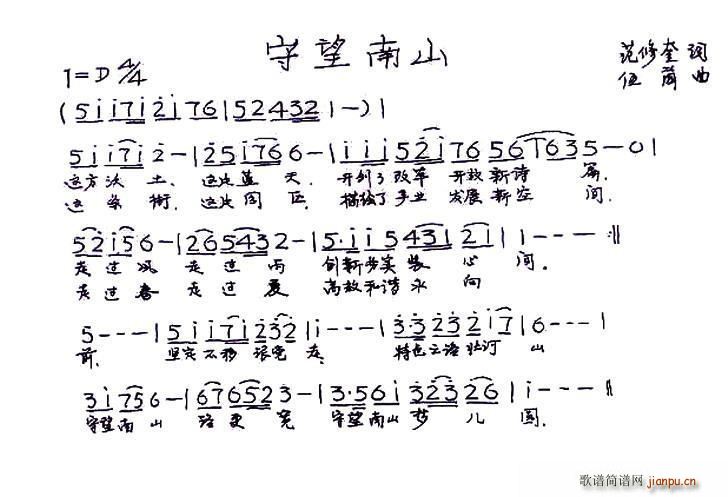 守望南山
范修奎 词
1=D 4/4
伍 曲
(5 i i 7 i 2 i 7 6 | 5 2 4 3 2 | 1 —) |
5 i i 7 i 2 — | 2 5 i 7 6 6 — | i i i 5 2 i 7 6 5 6 i 7 6 3 5 — 0 |
这方沃土、这片蓝天. 开创了改革 开放新诗篇.
这条街. 这片园区. 描绘了事业 发展新空间.
5 2 i 5 6 — | 2 6 5 4 3 2 — | 5 · i i 5 4 3 1 2 1 | 1 — — — :||
走过风 走过雨 创新务实 装心间.
走过春 走过夏 高放和谐永向
5 — — — | 5 i i 7 i 2 3 2 | i — — — | 3 · 3 2 3 2 i 7 | 6 — — — |
前. 坚实不移 走. 特色之语壮河山
3 i 7 5 6 — | 6 7 6 5 2 3 — | 3 · 5 6 i 3 2 3 2 6 | i — — — ||
守望南山 路更宽 守望南山梦儿圆.
歌谱简谱网
jianpu.cn